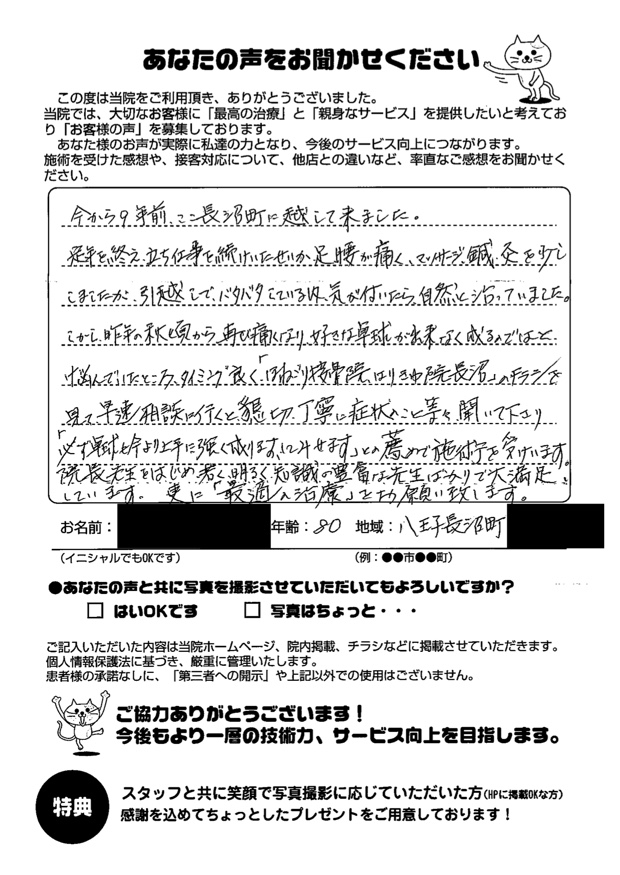 あなたの声をお聞かせください
この度は当院をご利用頂き、ありがとうございました。
当院では、大切なお客様に「最高の治療」と「親身なサービス」を提供したいと考えてお
り「お客様の声」を募集しております。
あなた様のお声が実際に私達の力となり、今後のサービス向上につながります。
施術を受けた感想や、接客対応について、他店との違いなど、率直なご感想をお聞かせく
ださい。
今から9年前、ここ長沼町に越して来ました。
定年を終え、立ち仕事を続けたせいか、足腰が痛く、マッサージ、鍼、灸を少し
しましたが、引越しで、バタバタしている内、気が付いたら自然と治っていました。
しかし、昨年の秋頃から、再び痛くなり、好きな卓球が出来なく成るのではと
悩んでいたところ、タイミング良く、「ほねごり接骨院はりきゅう院長沼」のチラシを
見て、早速、相談に行くと、懇切、丁寧に症状のこと等々、聞いて下さり
「必ず卓球も今より上手に強く成ります。してみせます」との薦めで施術を受けています。
院長先生をはじめ、若く、明るく、知識の豊富な先生ばかりで大満足
しています。更に「最適な治療」をお願い致します。
お名前：
年齢：80
地域：八王子長沼町
（イニシャルでもOKです）
（例：●●市●●町）
●あなたの声と共に写真を撮影させていただいてもよろしいですか？
□ はいOKです
□ 写真はちょっと・・・
ご記入いただいた内容は当院ホームページ、院内掲載、チラシなどに掲載させていただきます。
個人情報保護法に基づき、厳重に管理いたします。
患者様の承諾なしに、「第三者への開示」や上記以外での使用はございません。
ご協力ありがとうございます！
今後もより一層の技術力、サービス向上を目指します。
特典
スタッフと共に笑顔で写真撮影に応じていただいた方（HPに掲載OKな方）
感謝を込めてちょっとしたプレゼントをご用意しております！